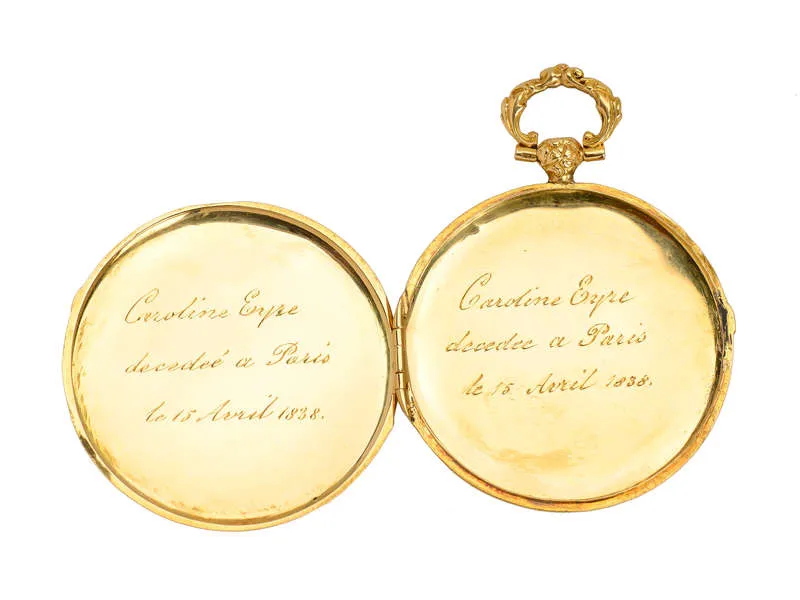 Caroline Eyre
decedeé a Paris
le 15 Avril 1838.
Caroline Eyre
decedee a Paris
le 15 Avril 1838.